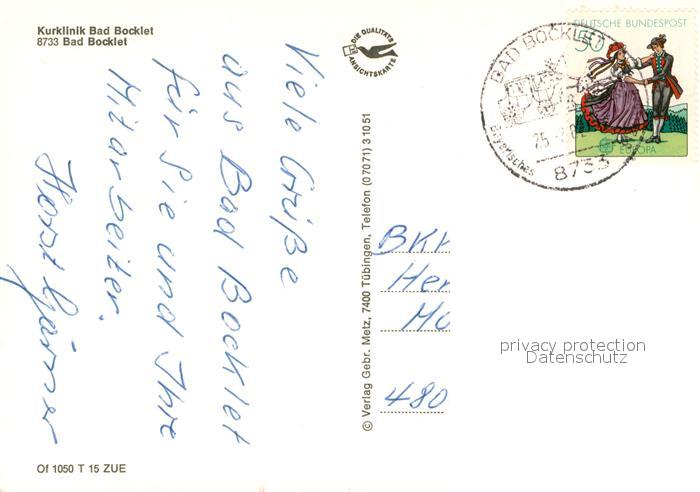 Kurklinik Bad Bocklet
8733 Bad Bocklet
DIE QUALITÄTS
ANSICHTSKARTE
DEUTSCHE BUNDESPOST
50
EUROPA
BAD BOCKLET
Bayerisches
8733
Viele Grüße
aus Bad Bocklet
für Sie und Ihre
Mitarbeiter.
Horst
© Verlag Gebr. Metz, 7400 Tübingen, Telefon (07071) 31051
BKK
Her
Mo
480
privacy protection
Datenschutz
Of 1050 T 15 ZUE